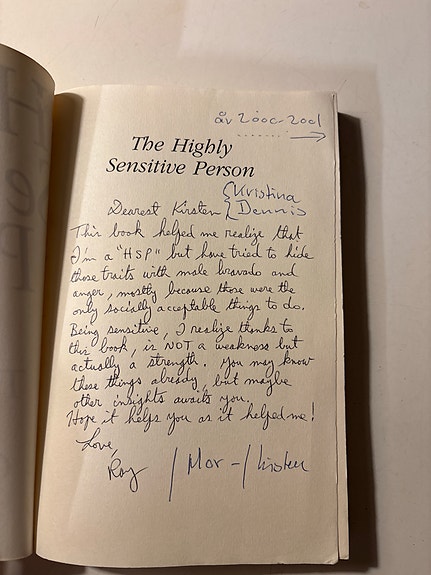 år 2000-2001
The Highly
Sensitive Person
Dearest Kirsten { Kristina
{ Dennis
This book helped me realize that
I'm a "HSP" but have tried to hide
those traits with male bravado and
anger, mostly because those were the
only socially acceptable things to do.
Being sensitive, I realize thanks to
this book, is NOT a weakness but
actually a strength. You may know
these things already, but maybe
other insights awaits you.
Hope it helps you as it helped me!
Love,
Roy / Mor-/Kirsten